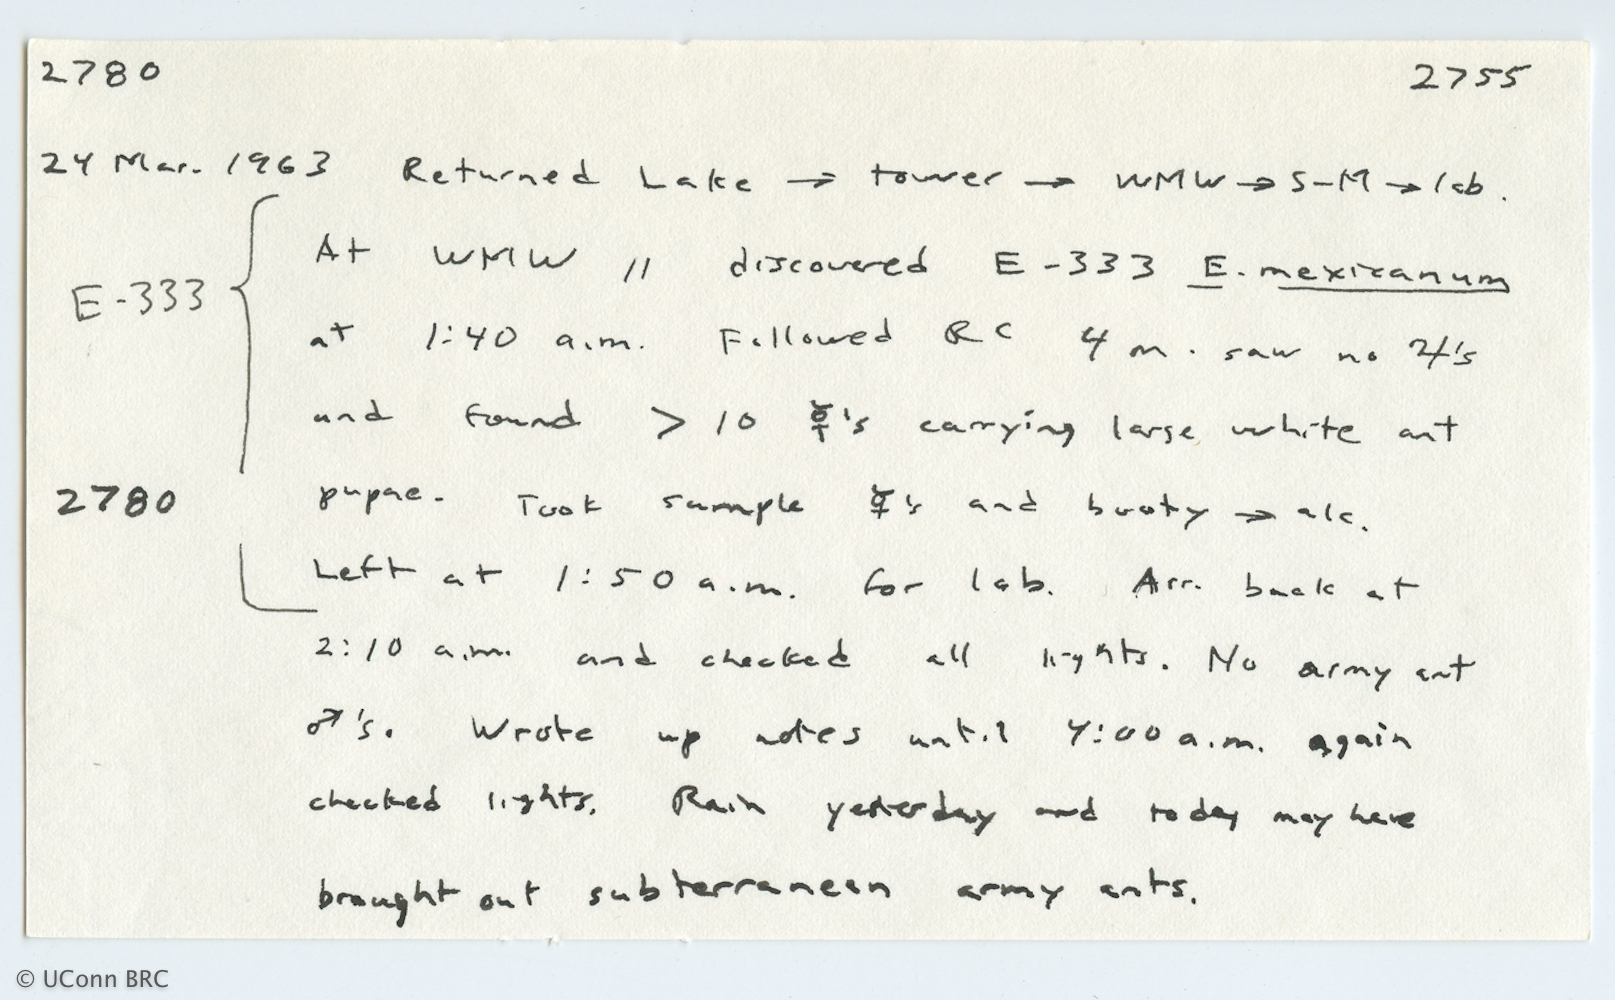 2780 2755
24 Mar. 1963 Returned Lake → tower → WMW → S-M → lab.
At WMW 11 discovered E-333 E. mexicanum
E-333
at 1:40 a.m. Followed RC 4 m. saw no ♃'s
and found > 10 ☿'s carrying large white ant
2780 pupae. Took sample ☿'s and booty → alc.
Left at 1:50 a.m. for lab. Arr. back at
2:10 a.m. and checked all lights. No army ant
♂'s. Wrote up notes until 4:00 a.m. again
checked lights. Rain yesterday and today may have
brought out subterranean army ants.
© UConn BRC